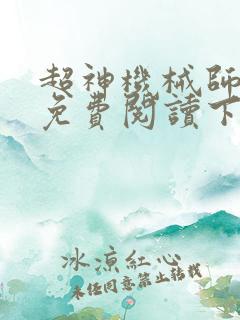 超神機械師
免費閱讀下
冰涼紅心
未经同意禁止转载